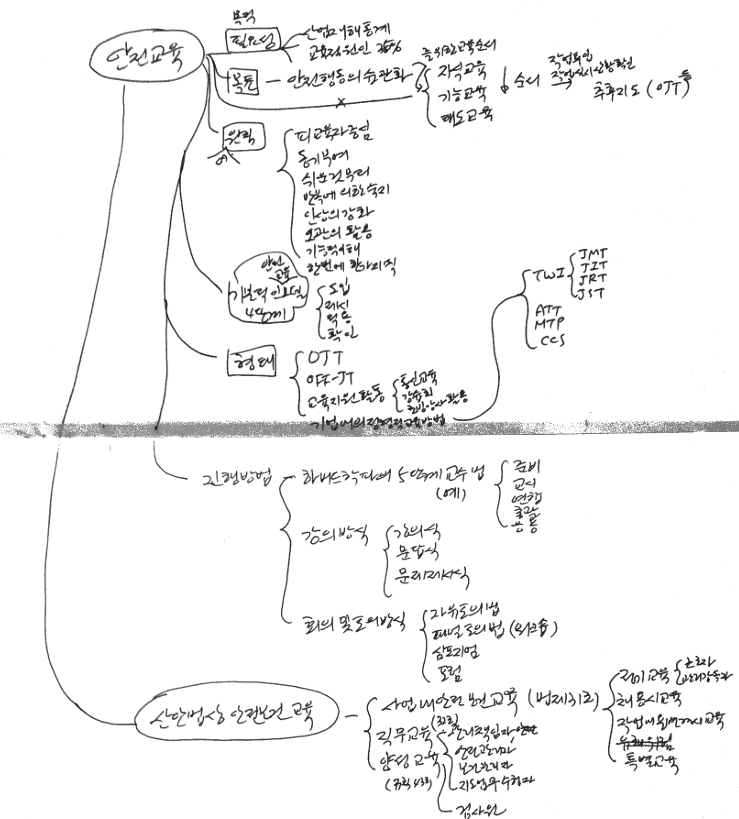 목적
안전교육
필요성
산업재해통계
교육지원인
목표 - 안전행동의 습관화
지식교육
기능교육
태도교육
순서
추후지도 (OJT)
원칙
피교육자중심
동기부여
쉬운것부터
반복에 의한 숙지
인상의 강화
오관의 활용
기능적이해
한번에 한가지씩
안전
교육
4단계
도입
제시
적용
확인
형태
OJT
OFF-JT
교육지원활동
통신교육
강습회
기업내의 정형적교육방법
TWI
JMT
JIT
JRT
JST
ATT
MTP
CCS
진행방법
하버드학파의 5단계 교수법
(예)
준비
교시
연합
총괄
응용
강의방식
강의식
문답식
문제제시식
회의 및 토의방식
자유토의법
패널토의법 (워크숍)
심포지엄
포럼
산안법상 안전보건교육
사업내안전보건교육 (법제31조)
정기교육
근로자
관리감독자
채용시교육
작업내용변경시교육
특별교육
직무교육
관리책임자
안전관리자
보건관리자
양성교육
검사원